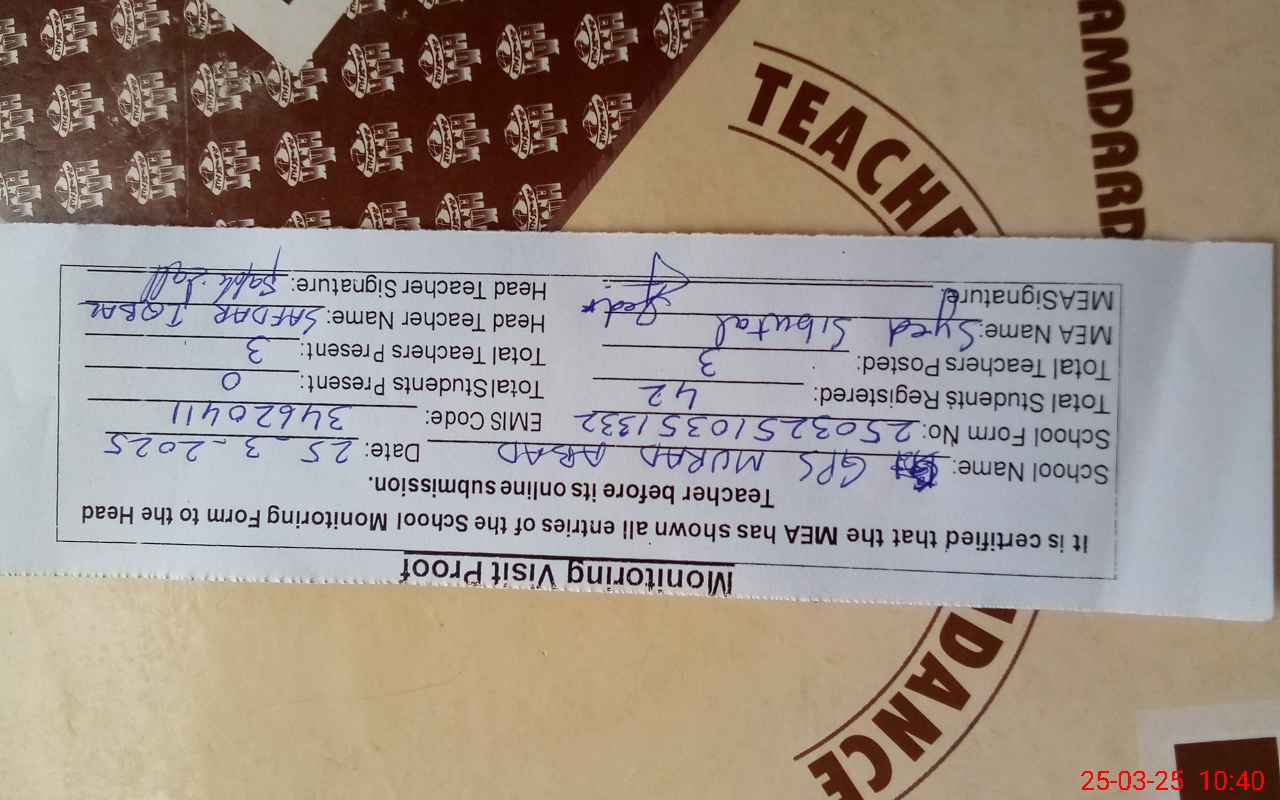 Monitoring Visit Proof
It is certified that the MEA has shown all entries of the School Monitoring Form to the Head
Teacher before its online submission.
School Name: GPS MURAD ABAD Date: 25-3-2025
School Form No: 25032510351332 EMIS Code: 34620411
Total Students Registered: 42 Total Students Present: 0
Total Teachers Posted: 3 Total Teachers Present: 3
MEA Name: Syed Head Teacher Name: SAFDAR IQBAL
MEA Signature: Head Teacher Signature:
TEACHE
NDANCE
AMDARD
25-03-25 10:40